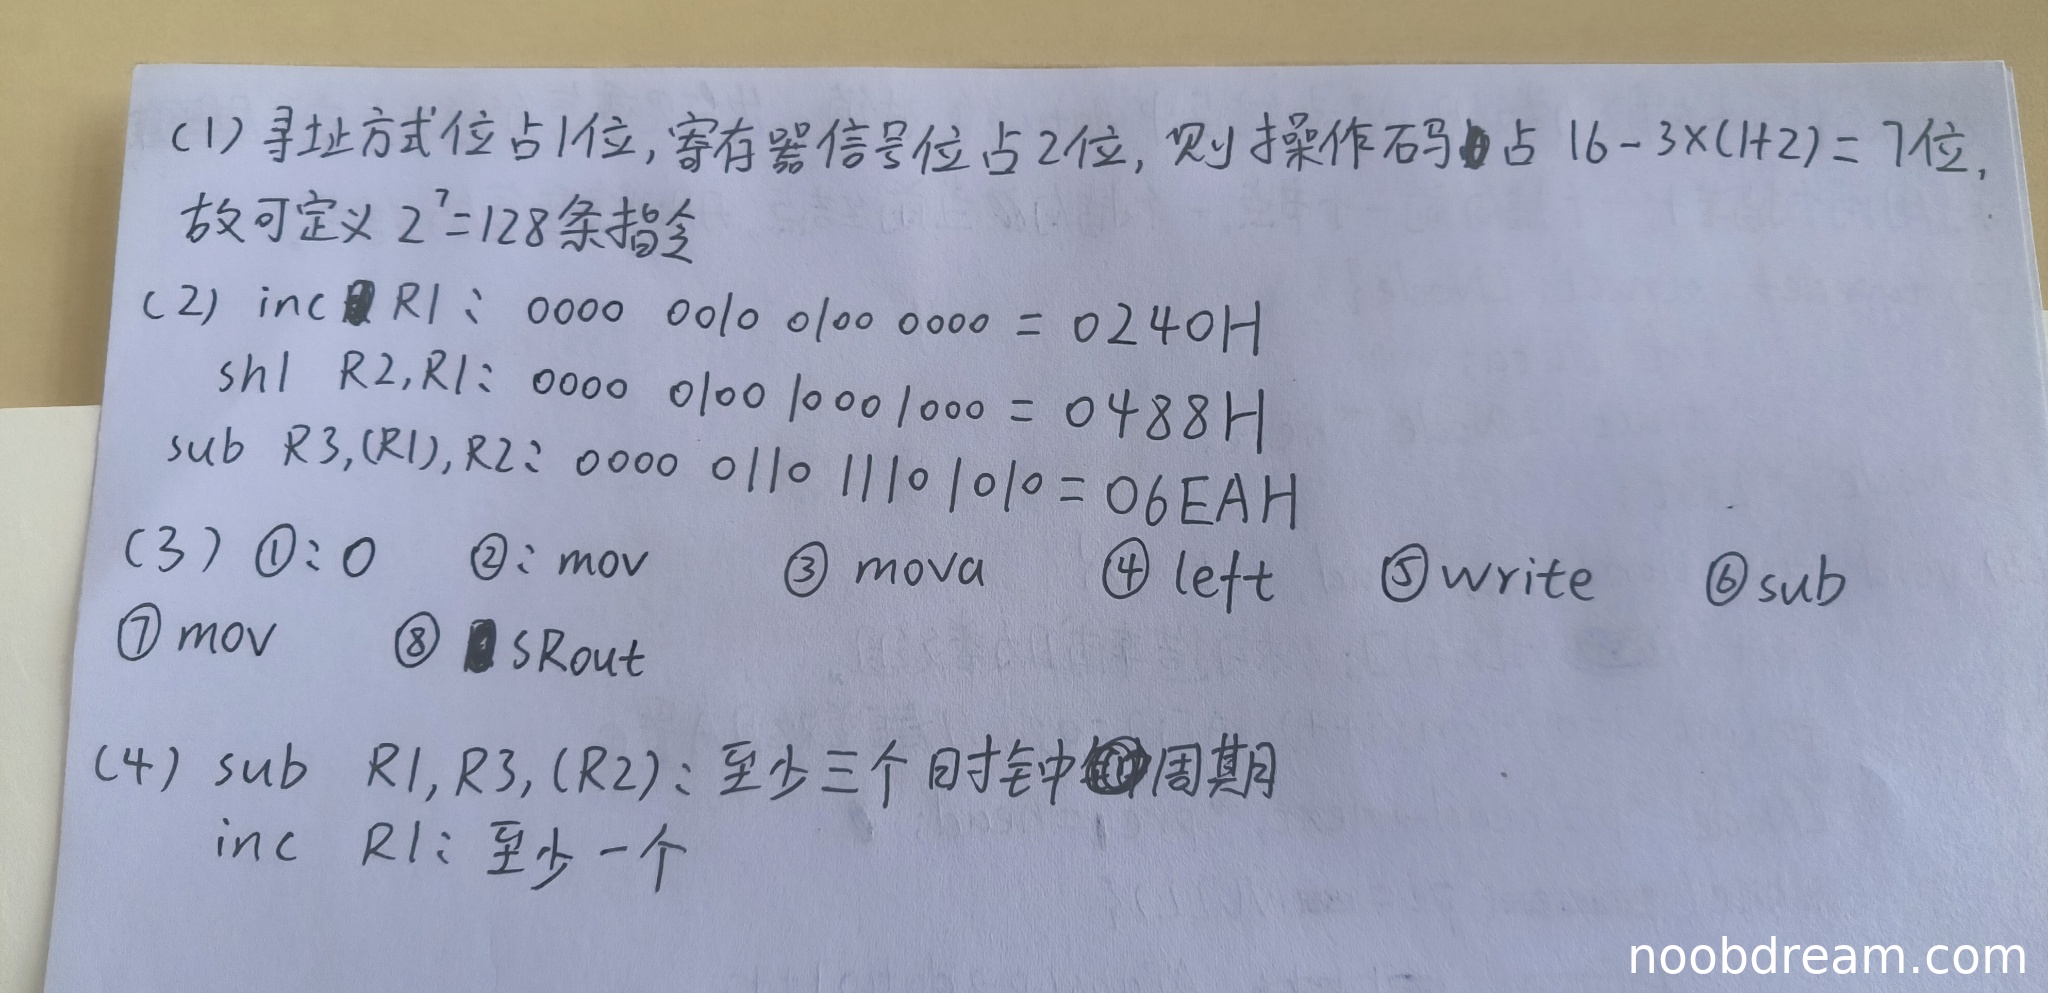 (1) 寻址方式位占1位,寄存器信号位占2位,则操作码占 16-3×(1+2)=7位,
故可定义 2⁷=128条指令
(2) inc R1: 0000 0010 0100 0000 = 0240H
shl R2,R1: 0000 0100 1000 1000 = 0488H
sub R3,(R1),R2: 0000 0110 1110 1010 = 06EAH
(3) ①:0 ②:mov ③ mova ④ left ⑤write ⑥sub
⑦mov ⑧ SRout
(4) sub R1,R3,(R2): 至少三个时钟周期
inc R1: 至少一个
noobdream.com